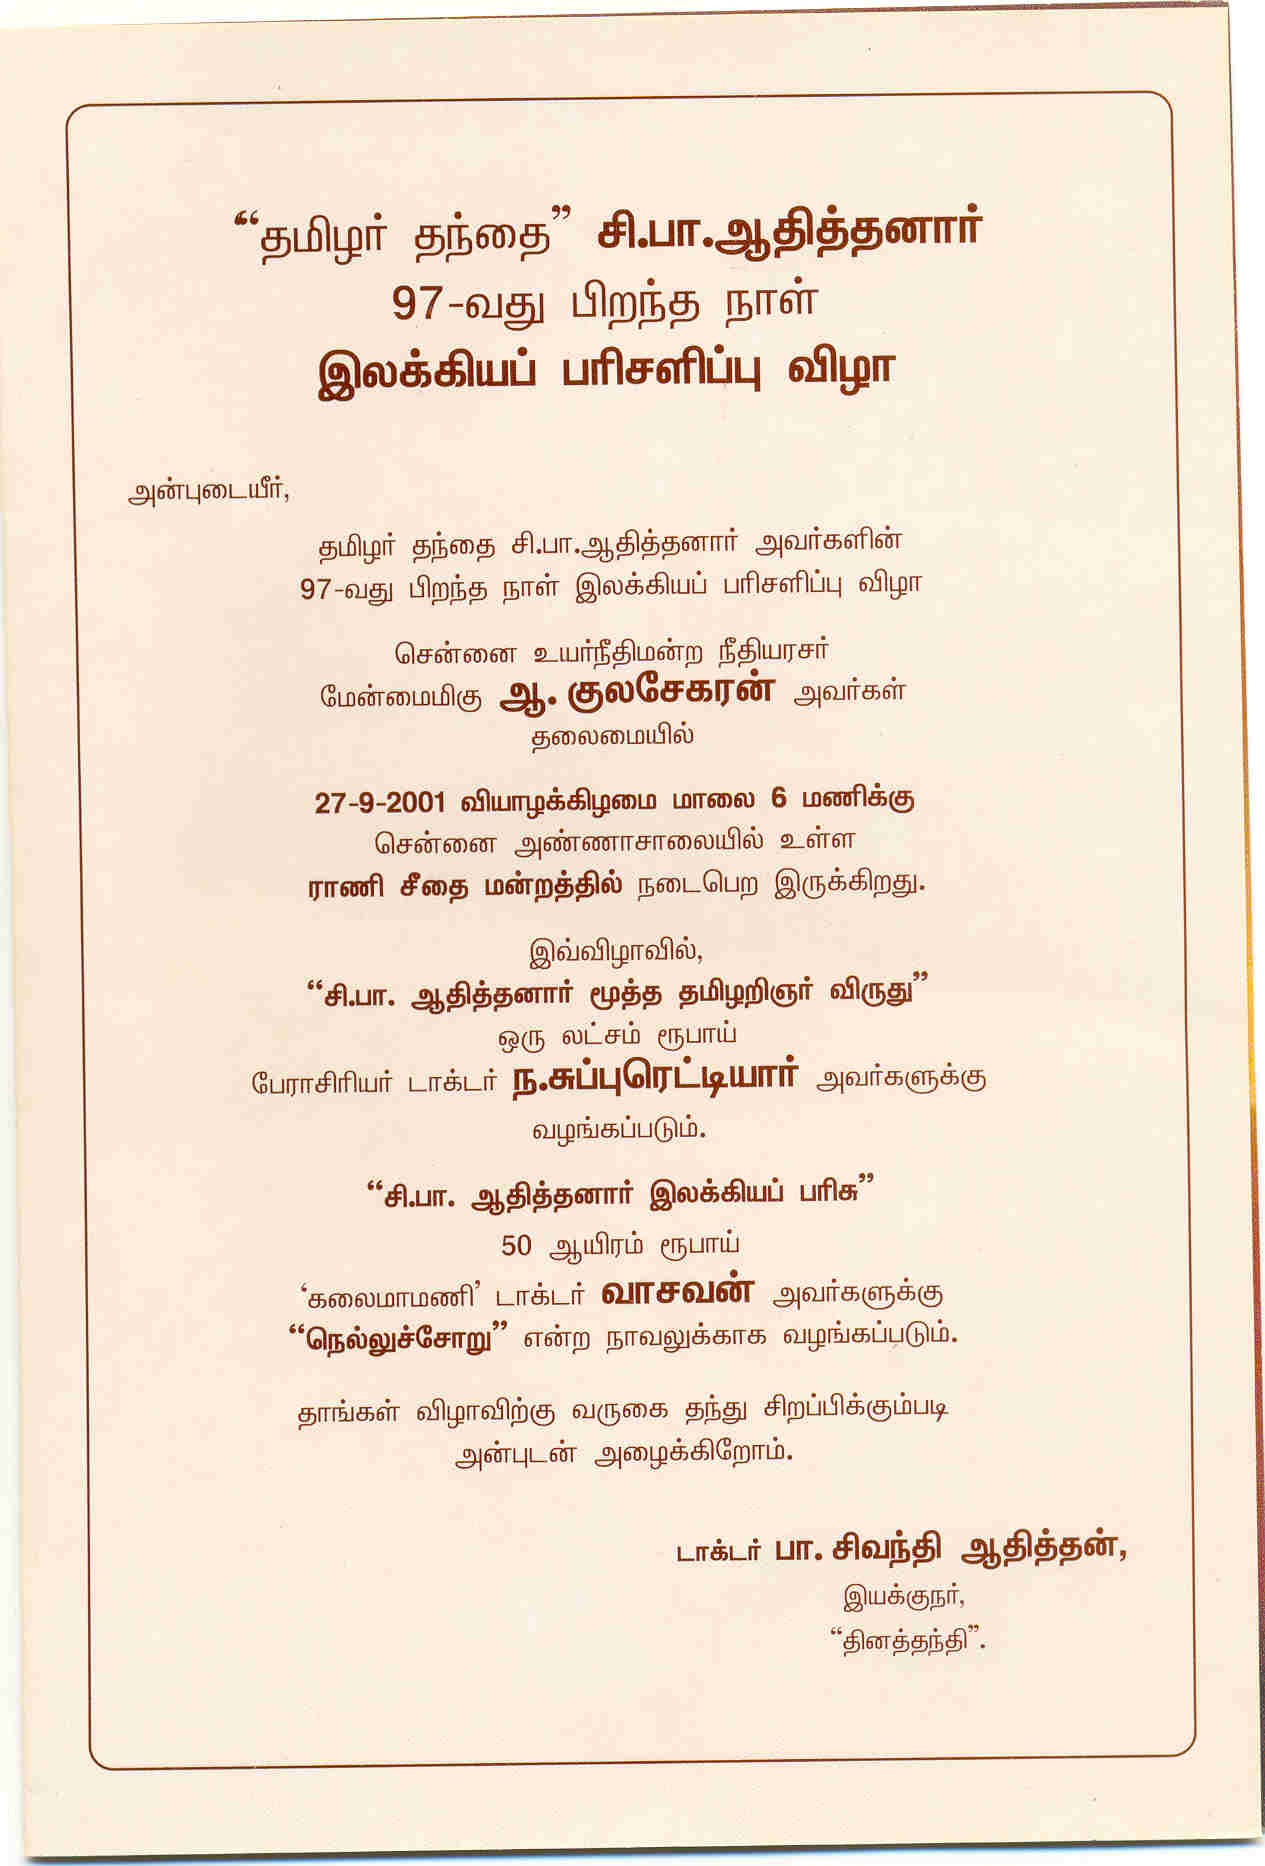 “தமிழர் தந்தை” சி.பா.ஆதித்தனார்
97-வது பிறந்த நாள்
இலக்கியப் பரிசளிப்பு விழா
அன்புடையீர்,
தமிழர் தந்தை சி.பா.ஆதித்தனார் அவர்களின்
97-வது பிறந்த நாள் இலக்கியப் பரிசளிப்பு விழா
சென்னை உயர்நீதிமன்ற நீதியரசர்
மேன்மைமிகு ஆ. குலசேகரன் அவர்கள்
தலைமையில்
27-9-2001 வியாழக்கிழமை மாலை 6 மணிக்கு
சென்னை அண்ணாசாலையில் உள்ள
ராணி சீதை மன்றத்தில் நடைபெற இருக்கிறது.
இவ்விழாவில்,
“சி.பா. ஆதித்தனார் மூத்த தமிழறிஞர் விருது”
ஒரு லட்சம் ரூபாய்
பேராசிரியர் டாக்டர் ந.சுப்புரெட்டியார் அவர்களுக்கு
வழங்கப்படும்.
“சி.பா. ஆதித்தனார் இலக்கியப் பரிசு”
50 ஆயிரம் ரூபாய்
‘கலைமாமணி’ டாக்டர் வாசவன் அவர்களுக்கு
“நெல்லுச்சோறு” என்ற நாவலுக்காக வழங்கப்படும்.
தாங்கள் விழாவிற்கு வருகை தந்து சிறப்பிக்கும்படி
அன்புடன் அழைக்கிறோம்.
டாக்டர் பா. சிவந்தி ஆதித்தன்,
இயக்குநர்,
“தினத்தந்தி”.